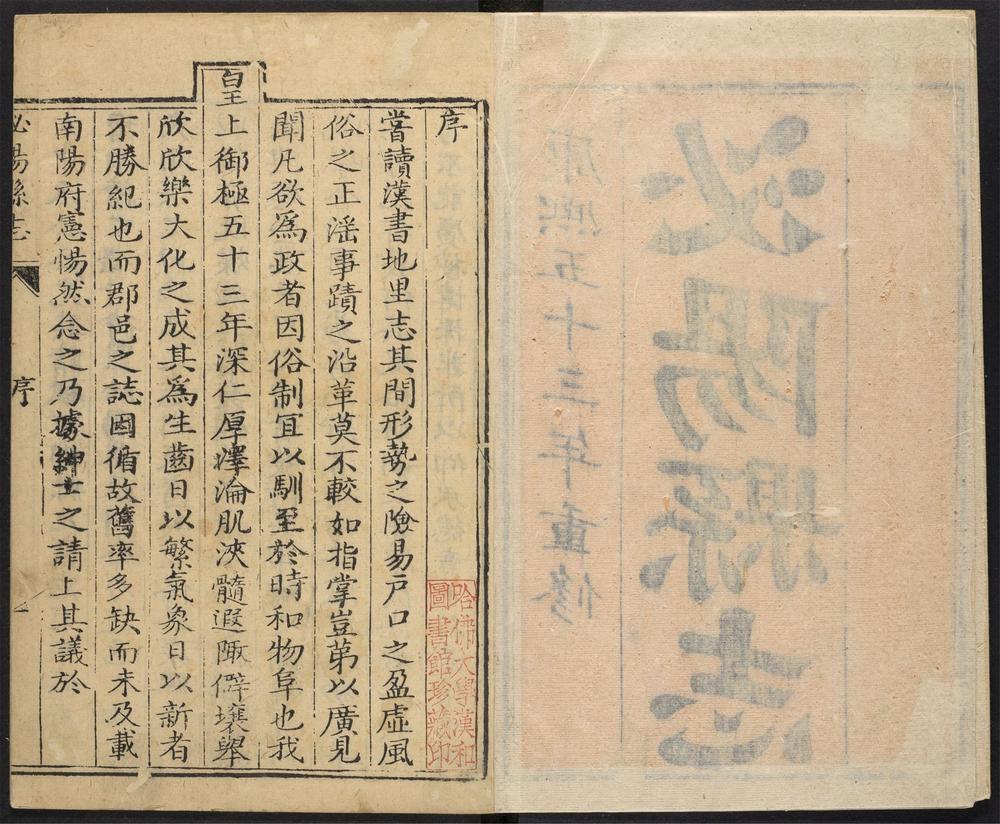 康熙五十三年重修
泌陽縣志
序
嘗讀漢書地里志其間形勢之險易戶口之盈虛風
俗之正滛事蹟之沿革莫不較如指掌豈第以廣見
聞凡欲爲政者因俗制宜以馴至於時和物阜也我
皇上御極五十三年深仁厚澤淪肌浹髓遐陬僻壤舉
欣欣樂大化之成其爲生齒日以繁氣象日以新者
不勝紀也而郡邑之誌因循故舊率多缺而未及載
南陽府憲惕然念之乃據紳士之請上其議於
泌陽縣志
序
一
哈佛大學漢和
圖書館珍藏印